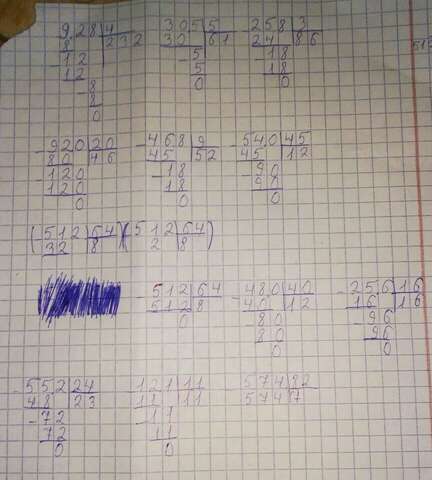 928|4 305|5 -258|3
8 |232 30 |61 24 |86
-12 -5 -18
12 5 18
-8 0 0
8
0
-920|20 -468|9 -540|45
80 |46 45 |52 45 |12
-120 -18 -90
120 18 90
0 0 0
(-512|64)(512|64)
32 |8 2 |8
-512|64 -480|40 -256|16
512|8 40 |12 16 |16
0 -80 -96
80 96
0 0
-552|24 121|11 -574|82
48 |23 11 |11 574|7
-72 -11
72 11
0 0